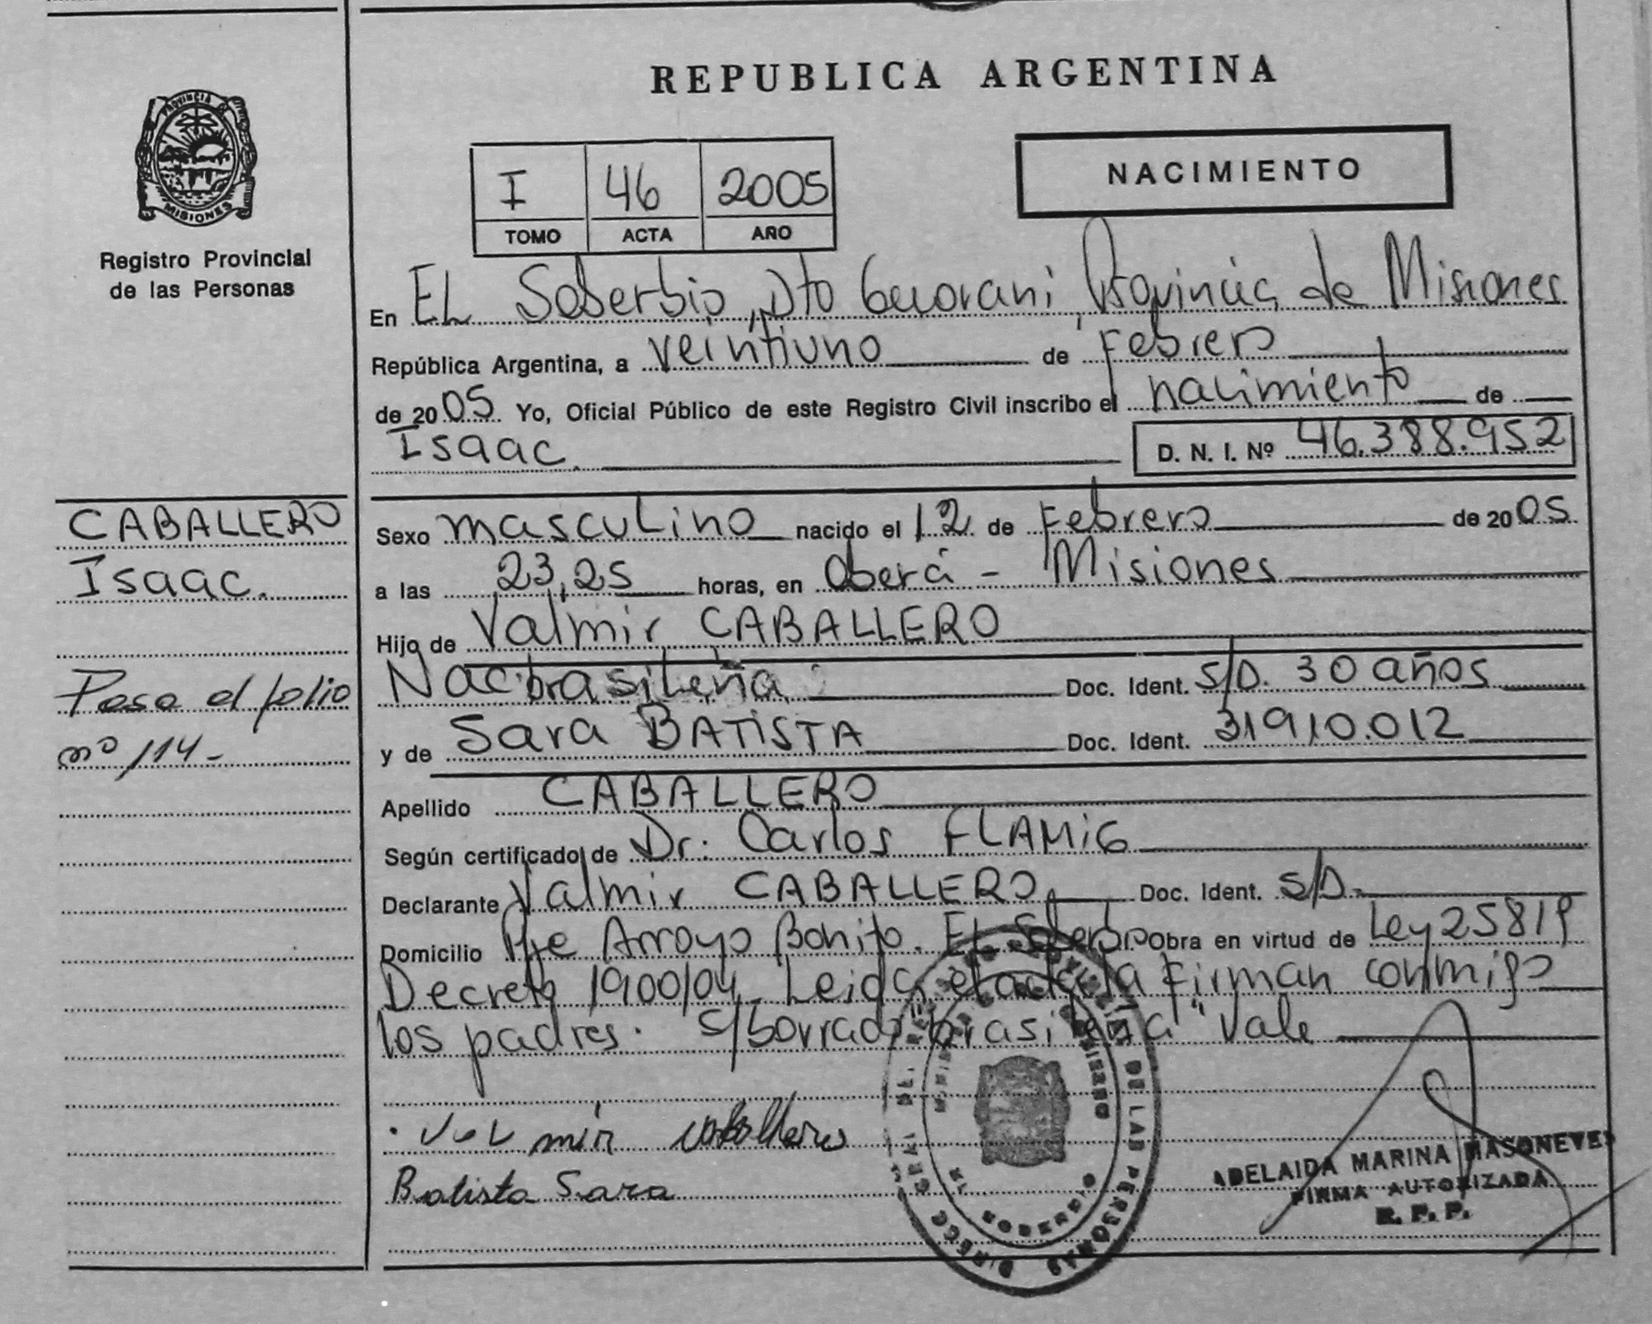 REPUBLICA ARGENTINA
PROVINCIA DE
MISIONES
Registro Provincial
de las Personas
I 46 2005
TOMO ACTA AÑO
NACIMIENTO
En EL Soberbio, Dto Guarani Provincia de Misiones
República Argentina, a veintiuno de Febrero
de 2005. Yo, Oficial Público de este Registro Civil inscribo el nacimiento de
Isaac. D. N. I. Nº 46.388.952
CABALLERO
Isaac.
Pasa al folio
nº 114-
Sexo masculino nacido el 12 de Febrero de 2005
a las 23,25 horas, en Oberá - Misiones
Hijo de Valmir CABALLERO
Nac. brasileña Doc. Ident. S/D. 30 años
y de Sara BATISTA Doc. Ident. 31.910.012
Apellido CABALLERO
Según certificado de Dr. Carlos FLAMIG
Declarante Valmir CABALLERO Doc. Ident. S/D.
Domicilio Pje Arroyo Bonito. El Soberbio. Obra en virtud de Ley 25819
Decreto 1900/04. Leida el acta la firman conmigo
los padres. s/borrado "brasileña" Vale
Valmir caballero
Batista Sara
ADELAIDA MARINA MASONEVES
FIRMA AUTORIZADA
R. P. P.
DE LAS PERSONAS